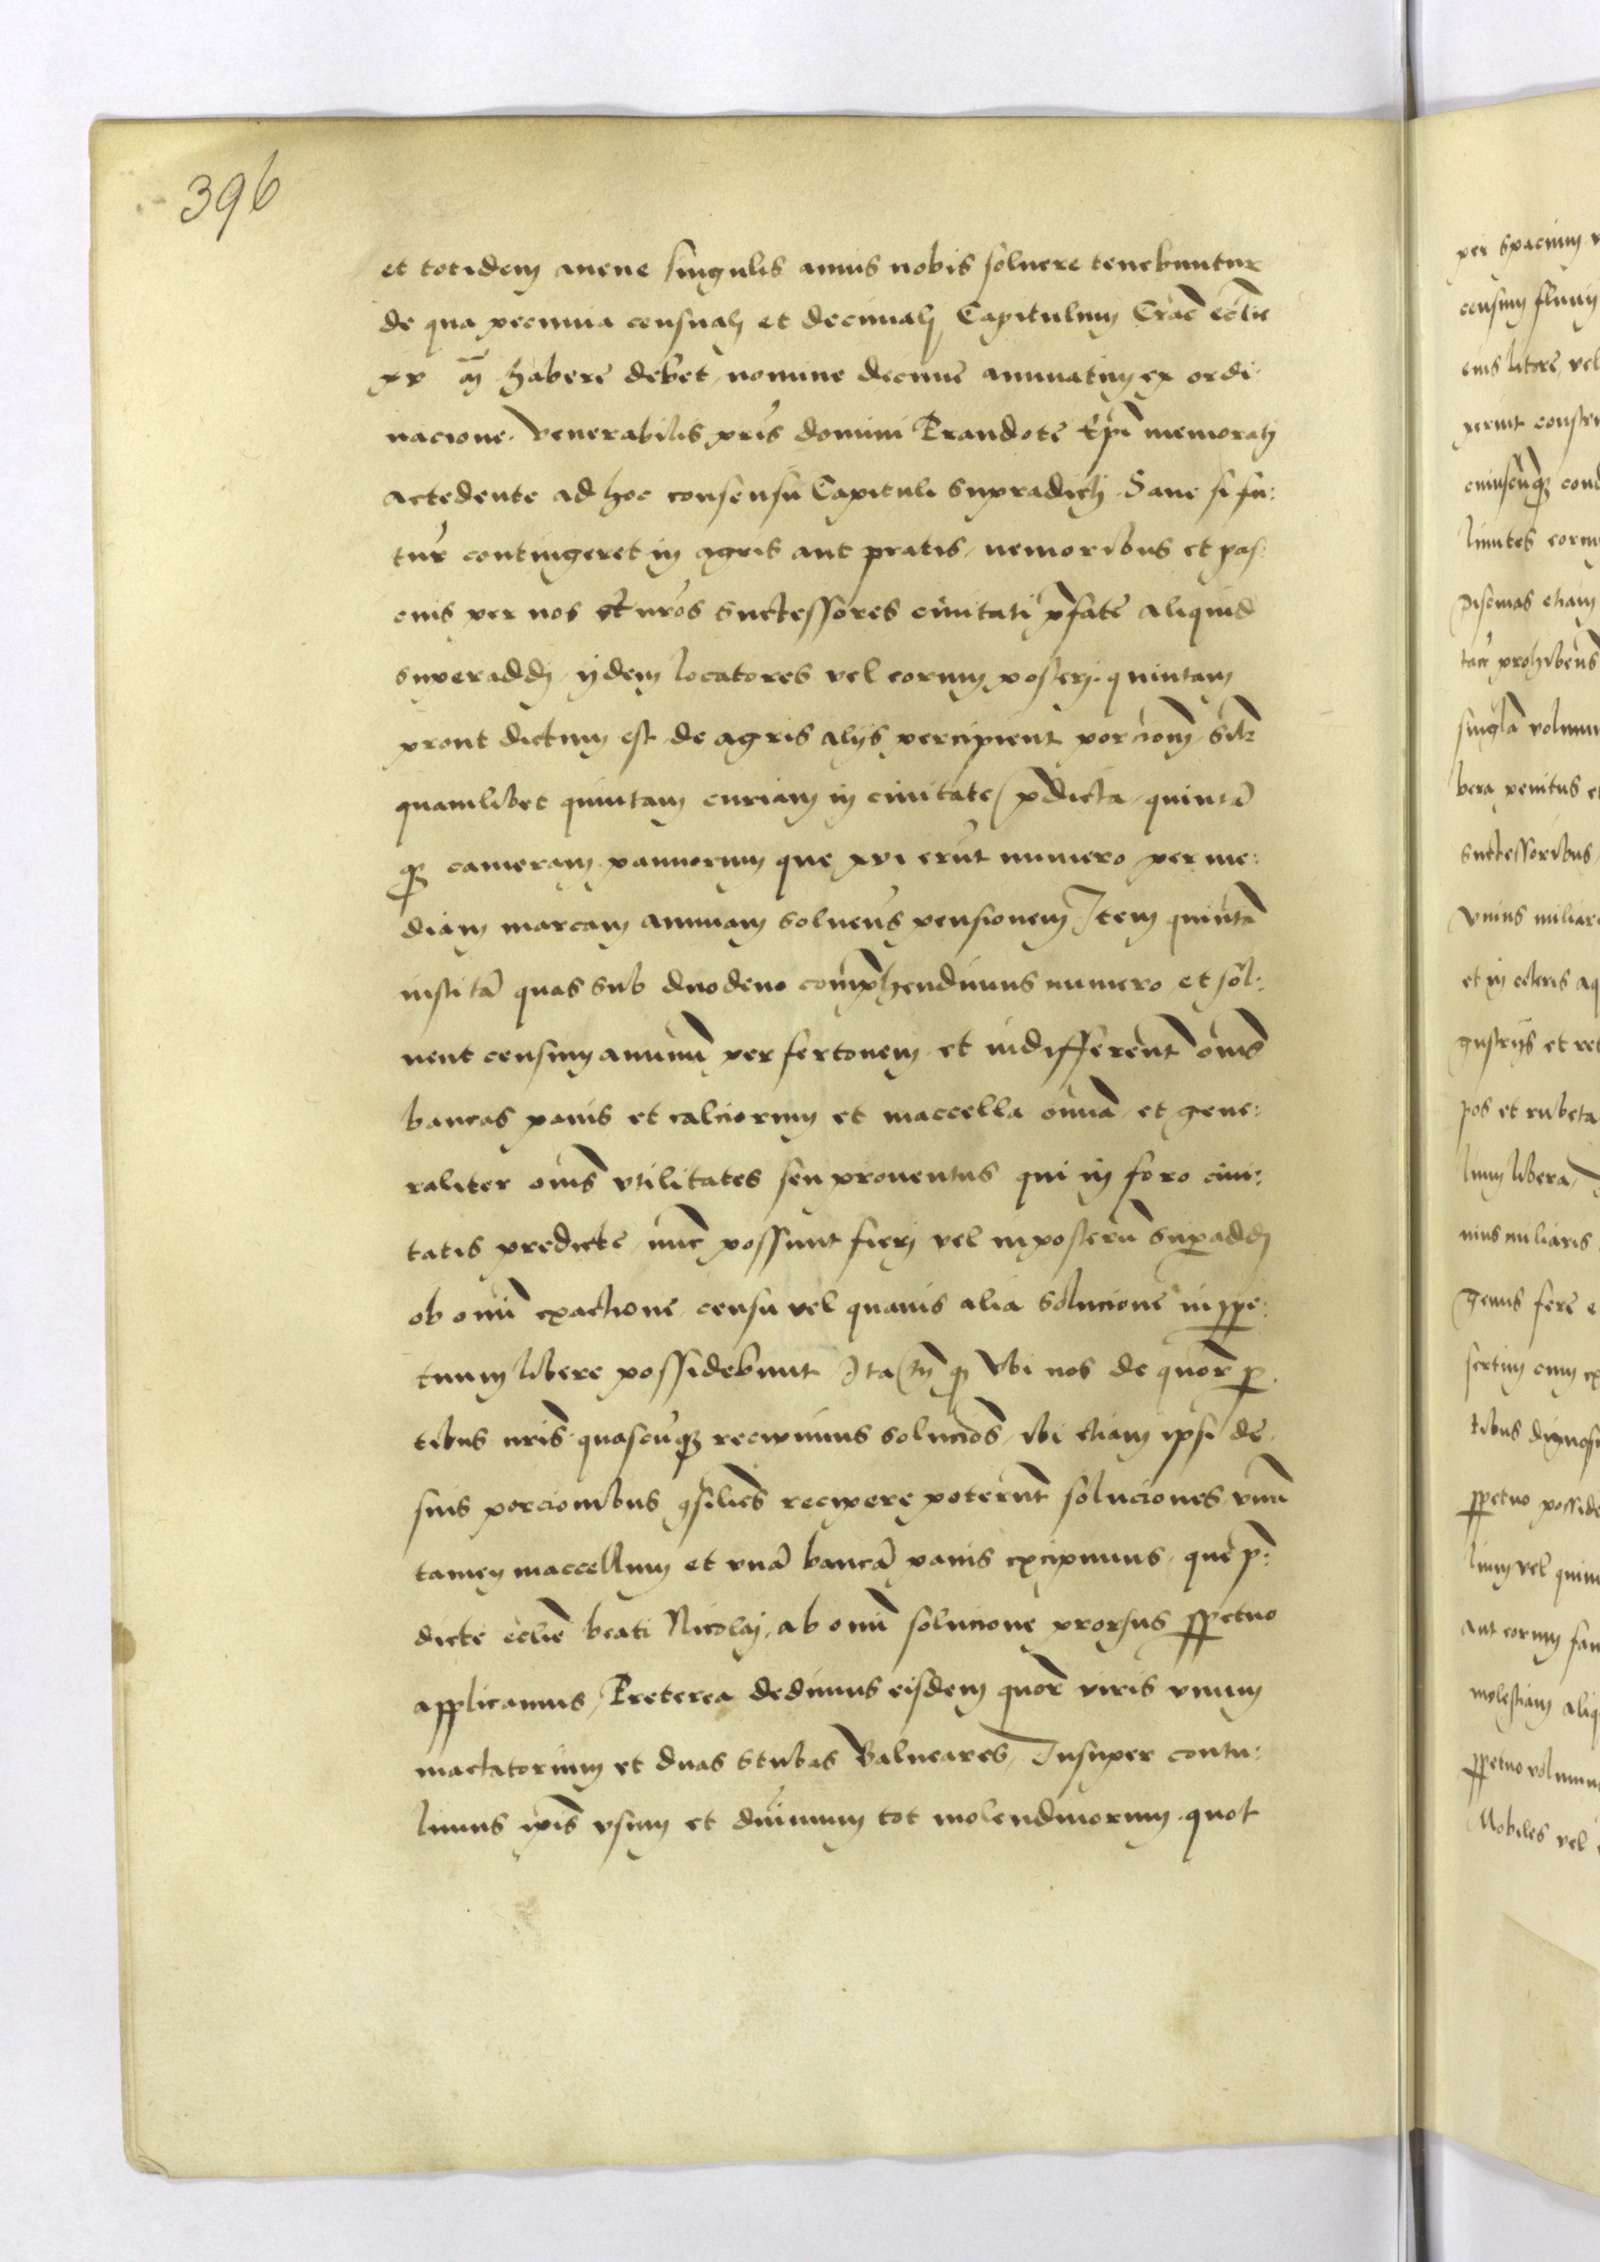 396
et totidem auene singulis annis nobis soluere tenebuntur
de qua pecunia censuali et decimali Capitulum Crac̄ ecctie
xv m̄ habere debet, nomine decime annuatim ex ordi-
nacione. Venerabilis pr̄is domini Prandote Ep̄i memorati
accedente ad hoc consensu Capituli supradicti. Sane si fu:
tur̄ contingeret in agris aut pratis, nemoribus et pas:
cuis per nos et nr̄os successores ciuitati p̄fate aliquid
superaddi, ijdem locatores vel eorum posteri. quintam
prout dictum est de agris alijs percipient porciom̄ Silr̄
quamlibet quintam curiam in ciuitate p̄dicta, quintā
q3 cameram pannorum que xvi erūt numero, per me:
diam marcam annuam soluens pensionem Item quintā
institā quas sub duodeno comp̄hendimus numero, et sol:
uent censum annuū per fertonem et indifferent̄ om̄s
bancas panis et calciorum et maccella om̄ia et gene:
raliter om̄s vtilitates seu prouentus qui in foro ciui:
tatis predicte, nūc possunt fieri vel inposterū sup̄addi
ob om̄i exactione, censu vel quauis alia solucione in ppe:
tuum libere possidebunt Ita tn̄ q Vbi nos de quor̄ p̄
tibus nr̄is quascūq3 recipimus solucio̅s, ibi etiam ipsi de
suis porcionibus cōsiles̄ recipere poterūt soluciones, vnū
tamen maccellum et vnā bancā panis excipimus, que p̄:
dicte ecclie beati Nicolai, ab om̄i solucione prorsus ppetuo
applicamus, Preterea dedimus eisdem quor̄ viris vnum
mactatorium et duas stubas Balneares, Insuper contu:
limus ip̄is vsum et dominium tot molendinorum. quot
per spacium
censum fluuij
eius litore, vel
perint constru
cuiuscūq3 cond
limites eorum
piscinas etiam
prohibens
singla volumu
bera penitus et
successoribus,
Vnius miliar
et in ceteris aq
gustrijs et ret
pos et rubeta
lium libera,
nius miliaris
genus fere
sertim cum ex
tibus dignosc
ppetuo posside
lium vel quin
aut eorum fam
molestiam aliq
ppetuo volumu
Nobiles vel